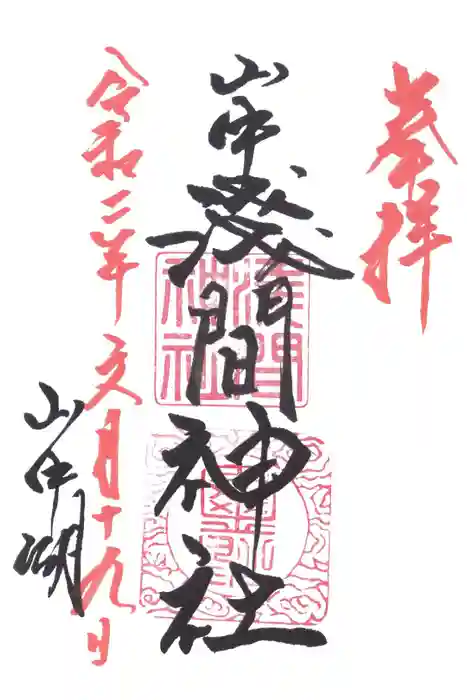 奉拝
山中浅間神社
浅間
神社
令和二年文月十九日
山中湖